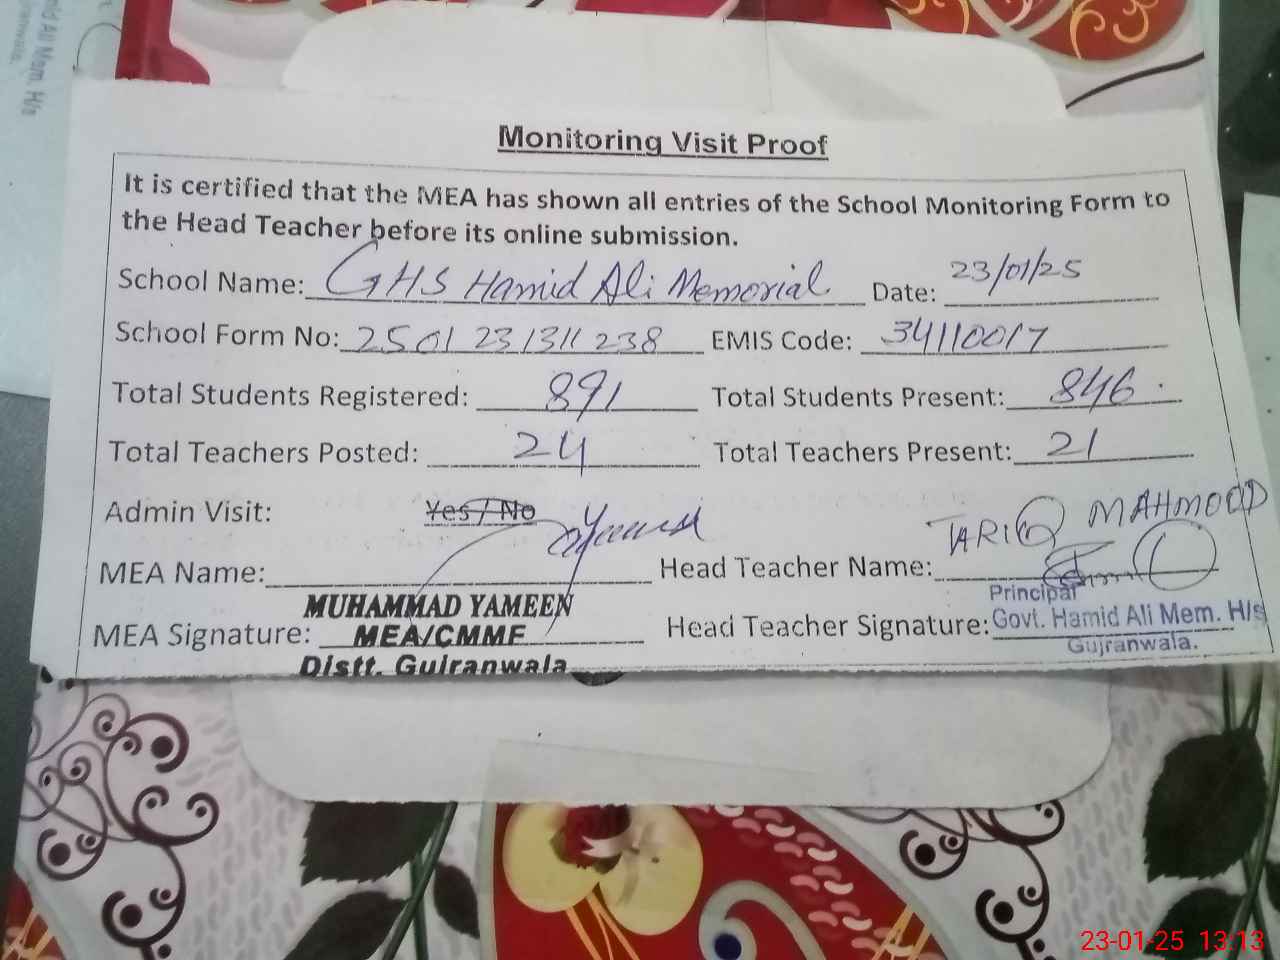 Monitoring Visit Proof
It is certified that the MEA has shown all entries of the School Monitoring Form to
the Head Teacher before its online submission.
School Name: GHS Hamid Ali Memorial Date: 23/01/25
School Form No: 2501231311238 EMIS Code: 34110017
Total Students Registered: 891 Total Students Present: 846
Total Teachers Posted: 24 Total Teachers Present: 21
Admin Visit: Yes / No
MEA Name: Head Teacher Name: TARIQ MAHMOOD
MUHAMMAD YAMEEN
MEA Signature: MEA/CMMF Head Teacher Signature:
Distt. Gujranwala
Principal
Govt. Hamid Ali Mem. H/s
Gujranwala.
23-01-25 13:13